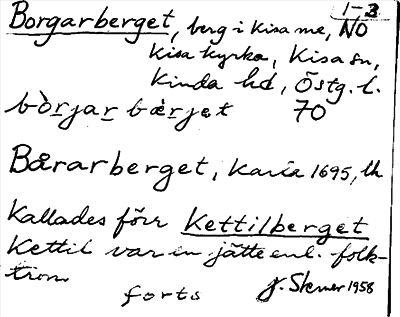 1-3
Borgarberget, berg i Kisa me, NO
Kisa kyrka, Kisa sn,
Kinda hd, Östg. l.
bòrjar bærjet 70
Bårarberget, karta 1695, lh
Kallades förr Kettilberget
Kettil var en jätte enl. folk-
tron
forts J. Stemer 1958